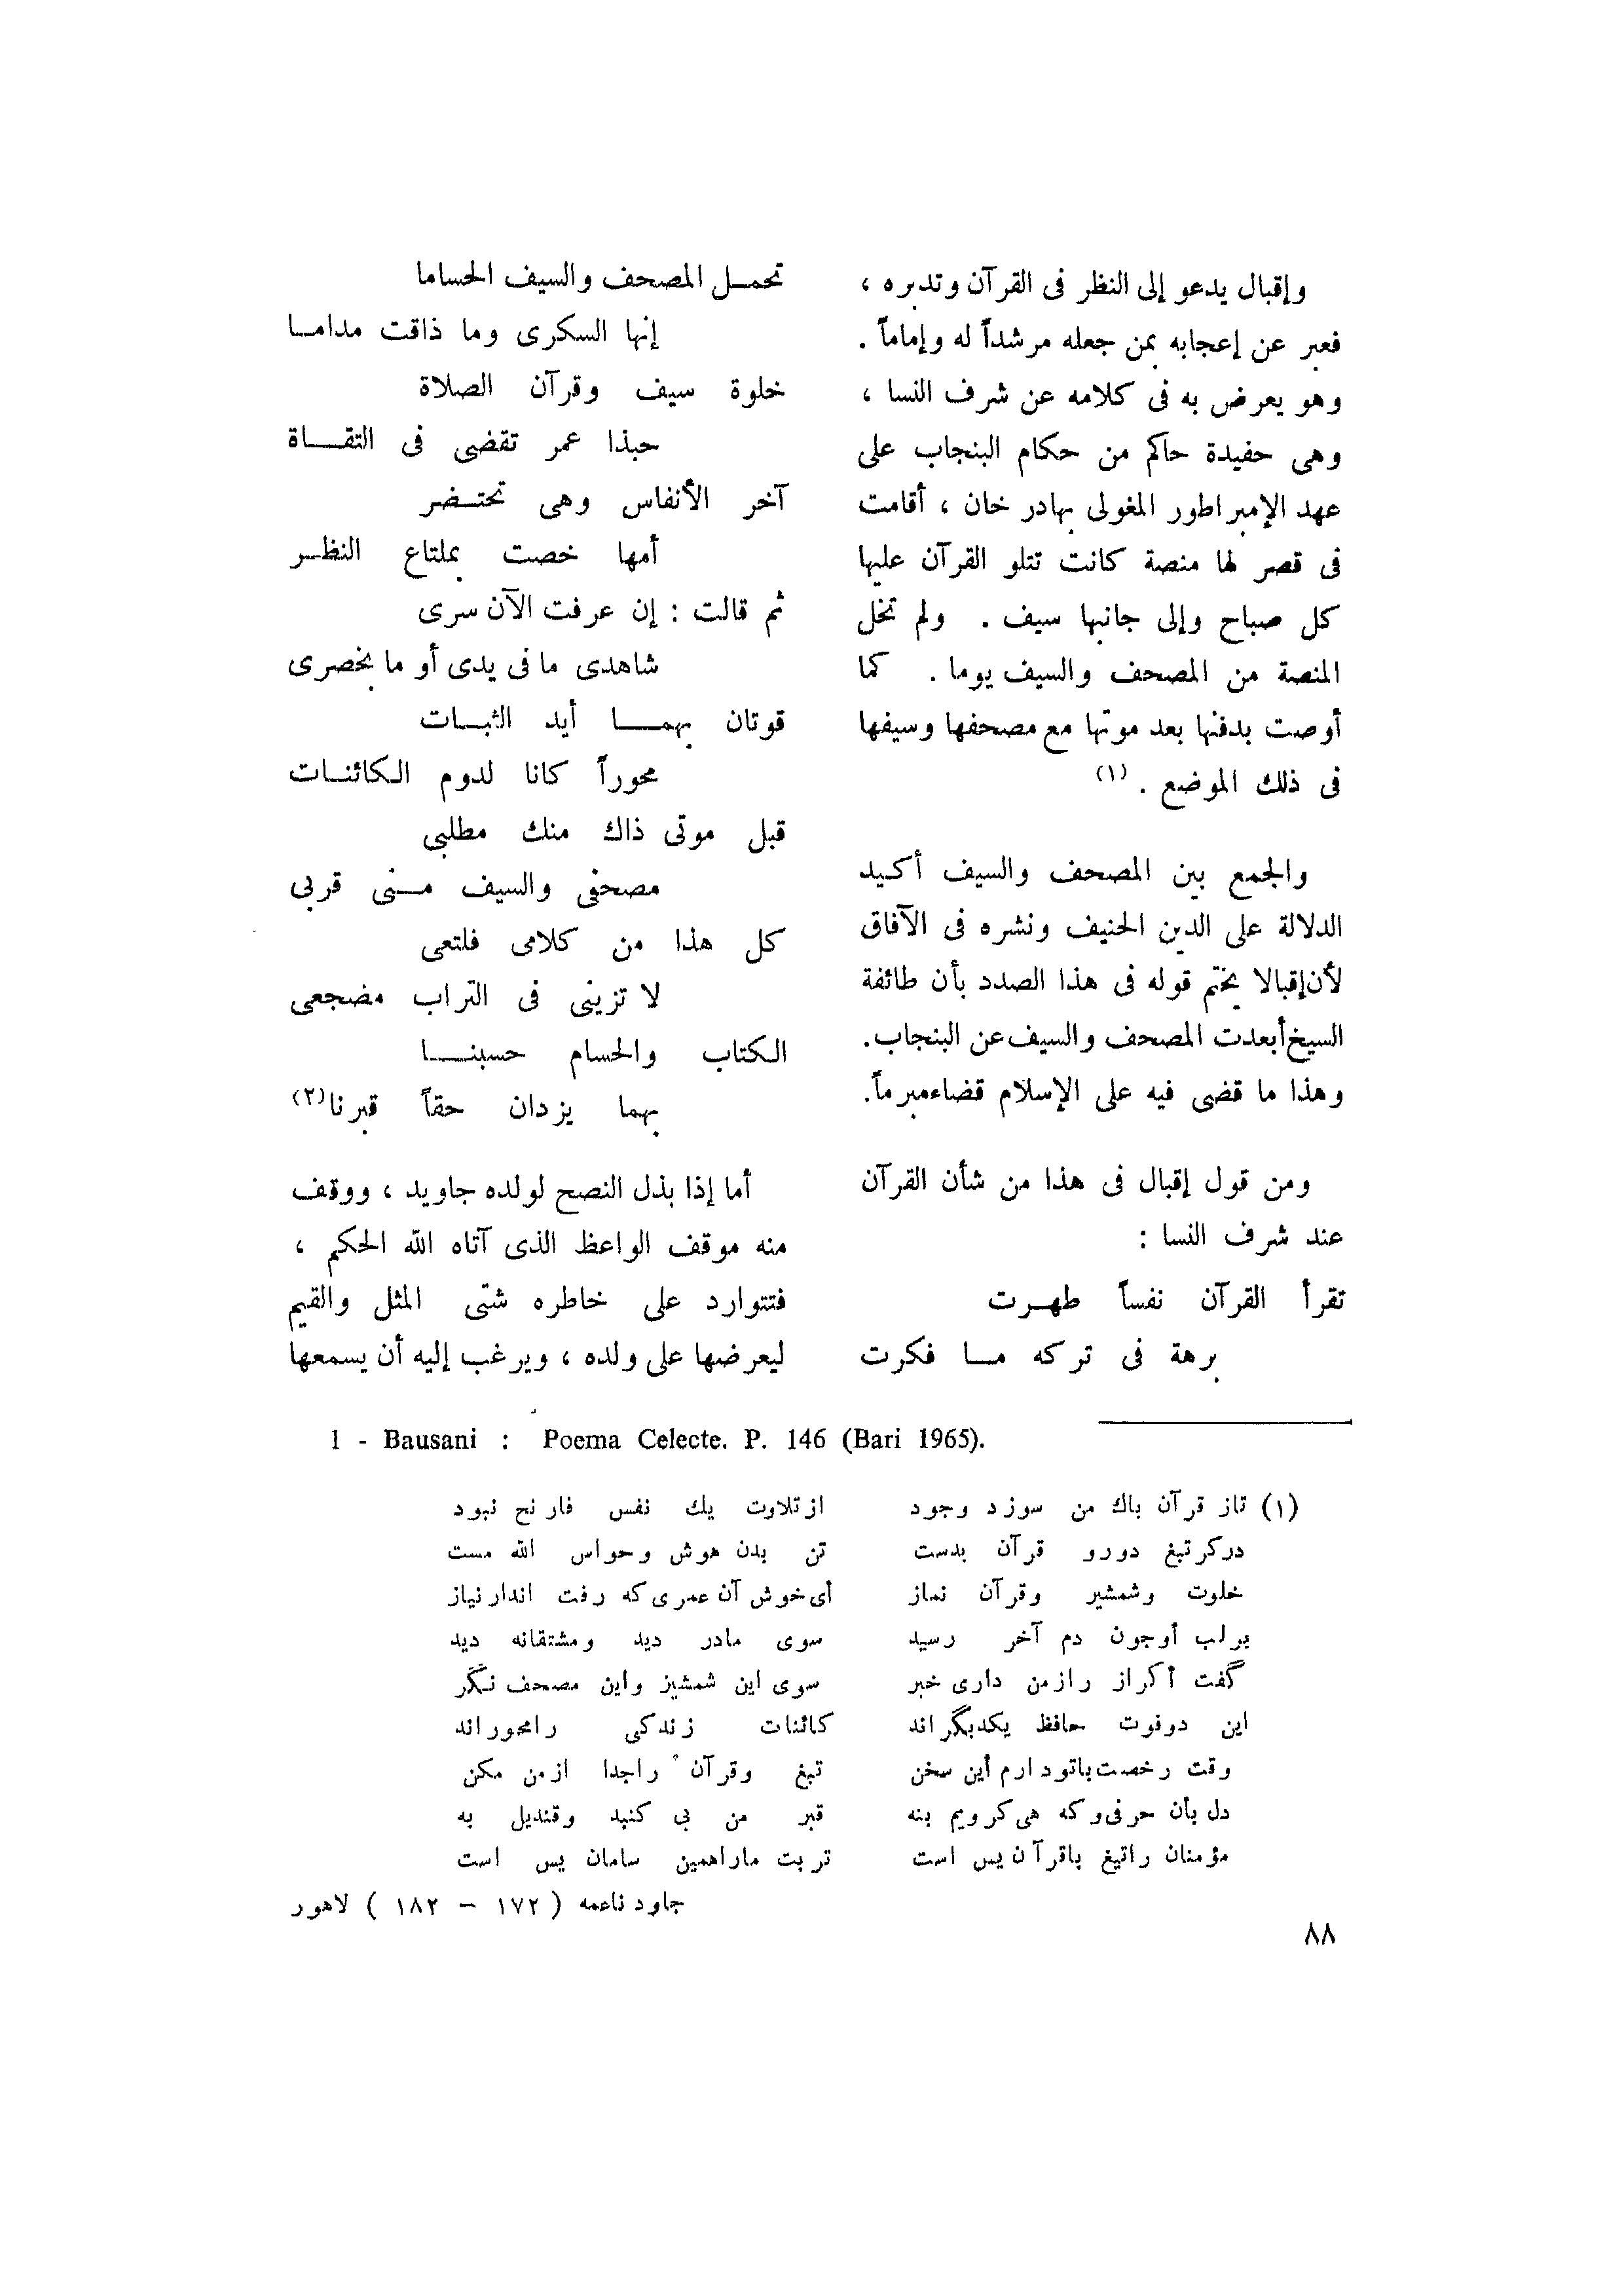 وإقبال يدعو إلى النظر فى القرآن وتدبره ،
فعبر عن إعجابه بمن جعله مرشداً له وإماماً .
وهو يعرض به فى كلامه عن شرف النسا ،
وهى حفيدة حاكم من حكام البنجاب على
عهد الإمبراطور المغولى بهادر خان ، أقامت
فى قصر لها منصة كانت تتلو القرآن عليها
كل صباح وإلى جانبها سيف . ولم تخل
المنصة من المصحف والسيف يوما . كما
أوصت بدفنها بعد موتها مع مصحفها وسيفها
فى ذلك الموضع . (١)
والجمع بين المصحف والسيف أكيد
الدلالة على الدين الحنيف ونشره فى الآفاق
لأن إقبالا يختم قوله فى هذا الصدد بأن طائفة
السيخ أبعدت المصحف والسيف عن البنجاب.
وهذا ما قضى فيه على الإسلام قضاء مبرماً.
ومن قول إقبال فى هذا من شأن القرآن
عند شرف النسا :
تقرأ القرآن نفساً طهرت
برهة فى تركه ما فكرت
تحمل المصحف والسيف الحساما
إنها السكرى وما ذاقت مداما
خلوة سيف وقرآن الصلاة
حبذا عمر تقضى فى التقاة
آخر الأنفاس وهى تحتضر
أمها خصت بملتاع النظر
ثم قالت : إن عرفت الآن سرى
شاهدى ما فى يدى أو ما بخصرى
قوتان بهما أيد الثبات
محوراً كانا لدوم الكائنات
قبل موتى ذاك منك مطلبى
مصحفى والسيف منى قربى
كل هذا من كلامى فلتعى
لا تزينى فى التراب مضجعى
الكتاب والحسام حسبنا
بهما يزدان حقاً قبرنا (٢)
أما إذا بذل النصح لولده جاويد ، ووقف
منه موقف الواعظ الذى آتاه الله الحكم ،
فتتوارد على خاطره شتى المثل والقيم
ليعرضها على ولده ، ويرغب إليه أن يسمعها
1 - Bausani : Poema Celecte. P. 146 (Bari 1965).
(١) تاز قرآن باك من سوزد وجود از تلاوت يك نفس فارنح نبود
دركر تيغ دورو قرآن بدست تن بدن هوش وحواس الله مست
خلوت وشمشير وقرآن نماز أى خوش آن عمرى كه رفت اندار نياز
برلب أوجون دم آخر رسيد سوى مادر ديد ومشتقانه ديد
گفت أكراز رازمن دارى خبر سوى اين شمشيز واين مصحف نگر
اين دوفوت حافظ يكديگراند كائنات زندكى رامحوراند
وقت رخصت باتودارم أين سخن تيغ وقرآن راجدا ازمن مكن
دل بأن حرفى وكه هى كرويم بنه قبر من بى كنبد وقنديل به
مؤمنان راتيغ باقرآن يس است تربت ماراهمين سامان يس است
جاود ناعمه ( ١٧٢ – ١٨٢ ) لاهور
٨٨